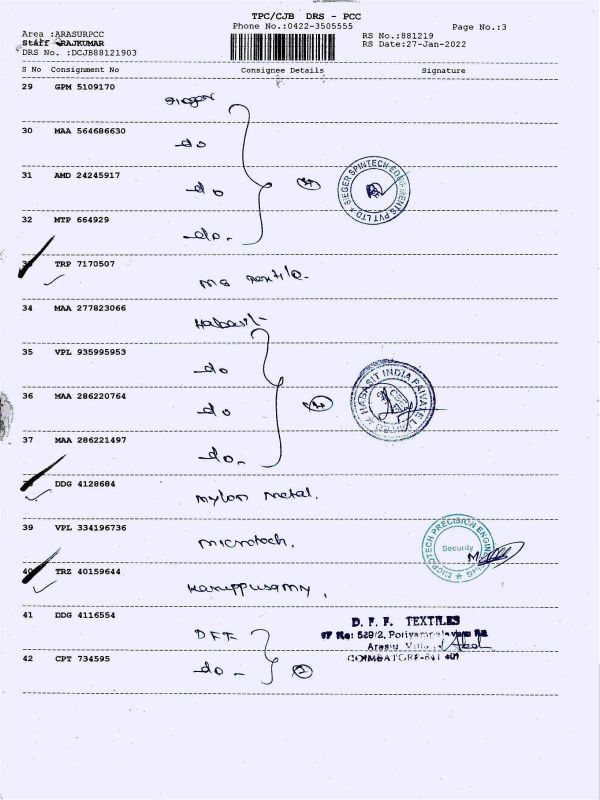 TPC/CJB DRS - PCC
Phone No.:0422-3505555
Page No.:3
Area :ARASURPCC
RS No.:881219
Staff RAJKUMAR
RS Date:27-Jan-2022
DRS No. :DCJB88121903
S No Consignment No Consignee Details Signature
29 GPM 5109170
Sieger
30 MAA 564686630
do
31 AMD 24245917
do
SIEGER SPINTECH EQUIPMENTS PVT LTD
32 MTP 664929
do.
TRP 7170507
MS Textile
34 MAA 277823066
Habasit
35 VPL 935995953
do
36 MAA 286220764
do
HABASIT INDIA PRIVATE
37 MAA 286221497
do.
DDG 4128684
Nylon Metal.
39 VPL 334196736
Microtech.
MICROTECH PRECISION ENGINEERING
Security
40 TRZ 40159644
Karuppusamy.
41 DDG 4116554
DFF
D. F. F. TEXTILES
529/2,
Arasur
42 CPT 734595
do
2
COIMBATORE-641 407